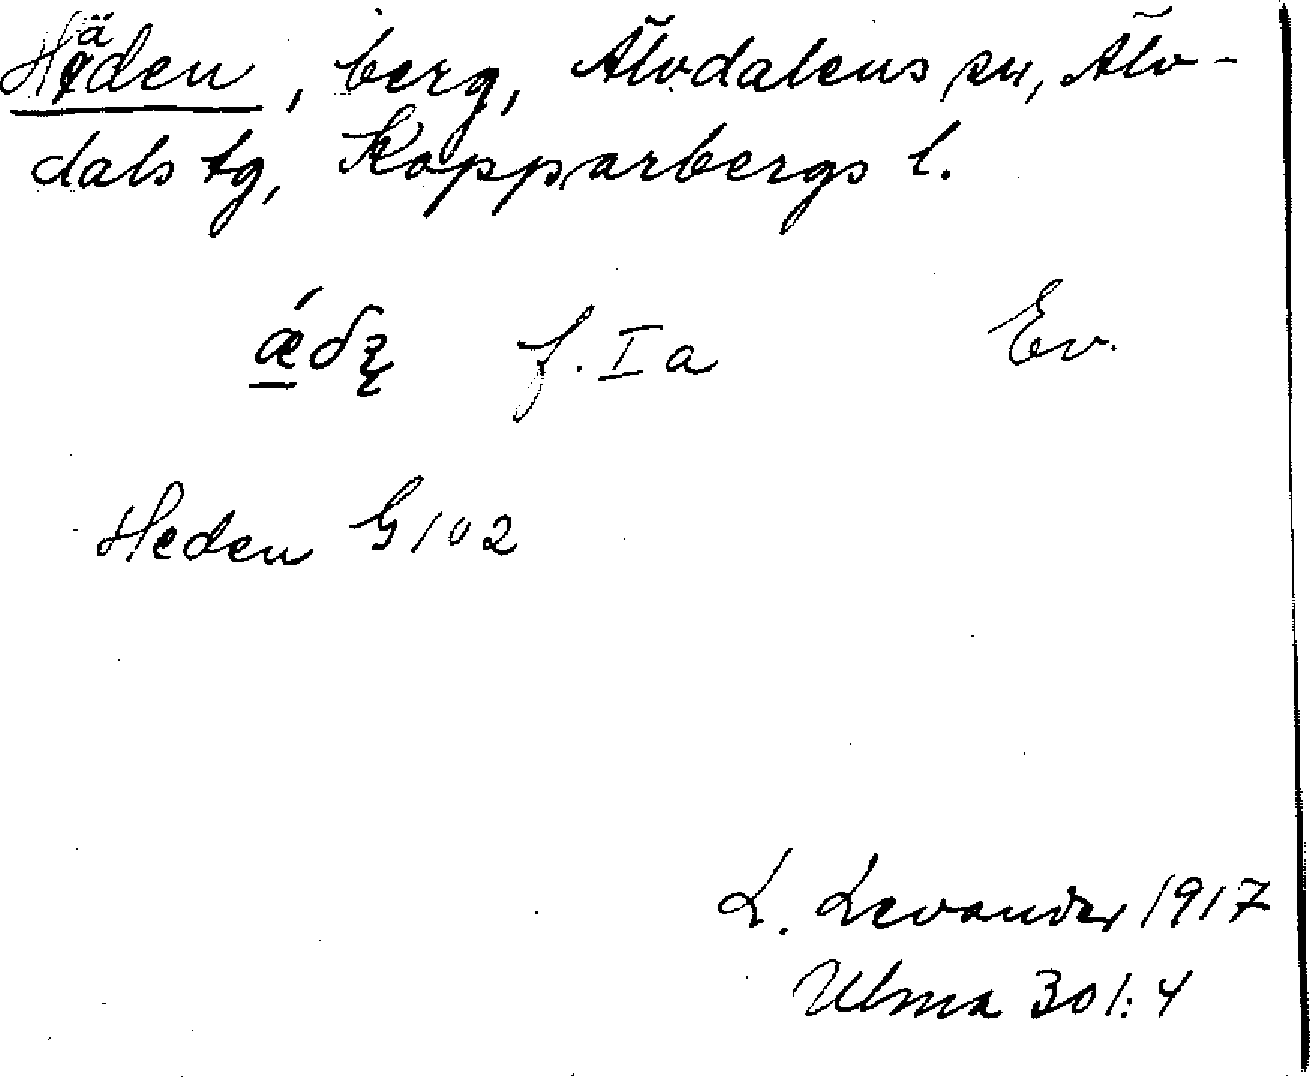 Häden, berg, Älvdalens sn, Älv-
dals tg, Kopparbergs l.
f. I a Ev.
Heden G 102
L. Levander 1917
Ulma 301:4